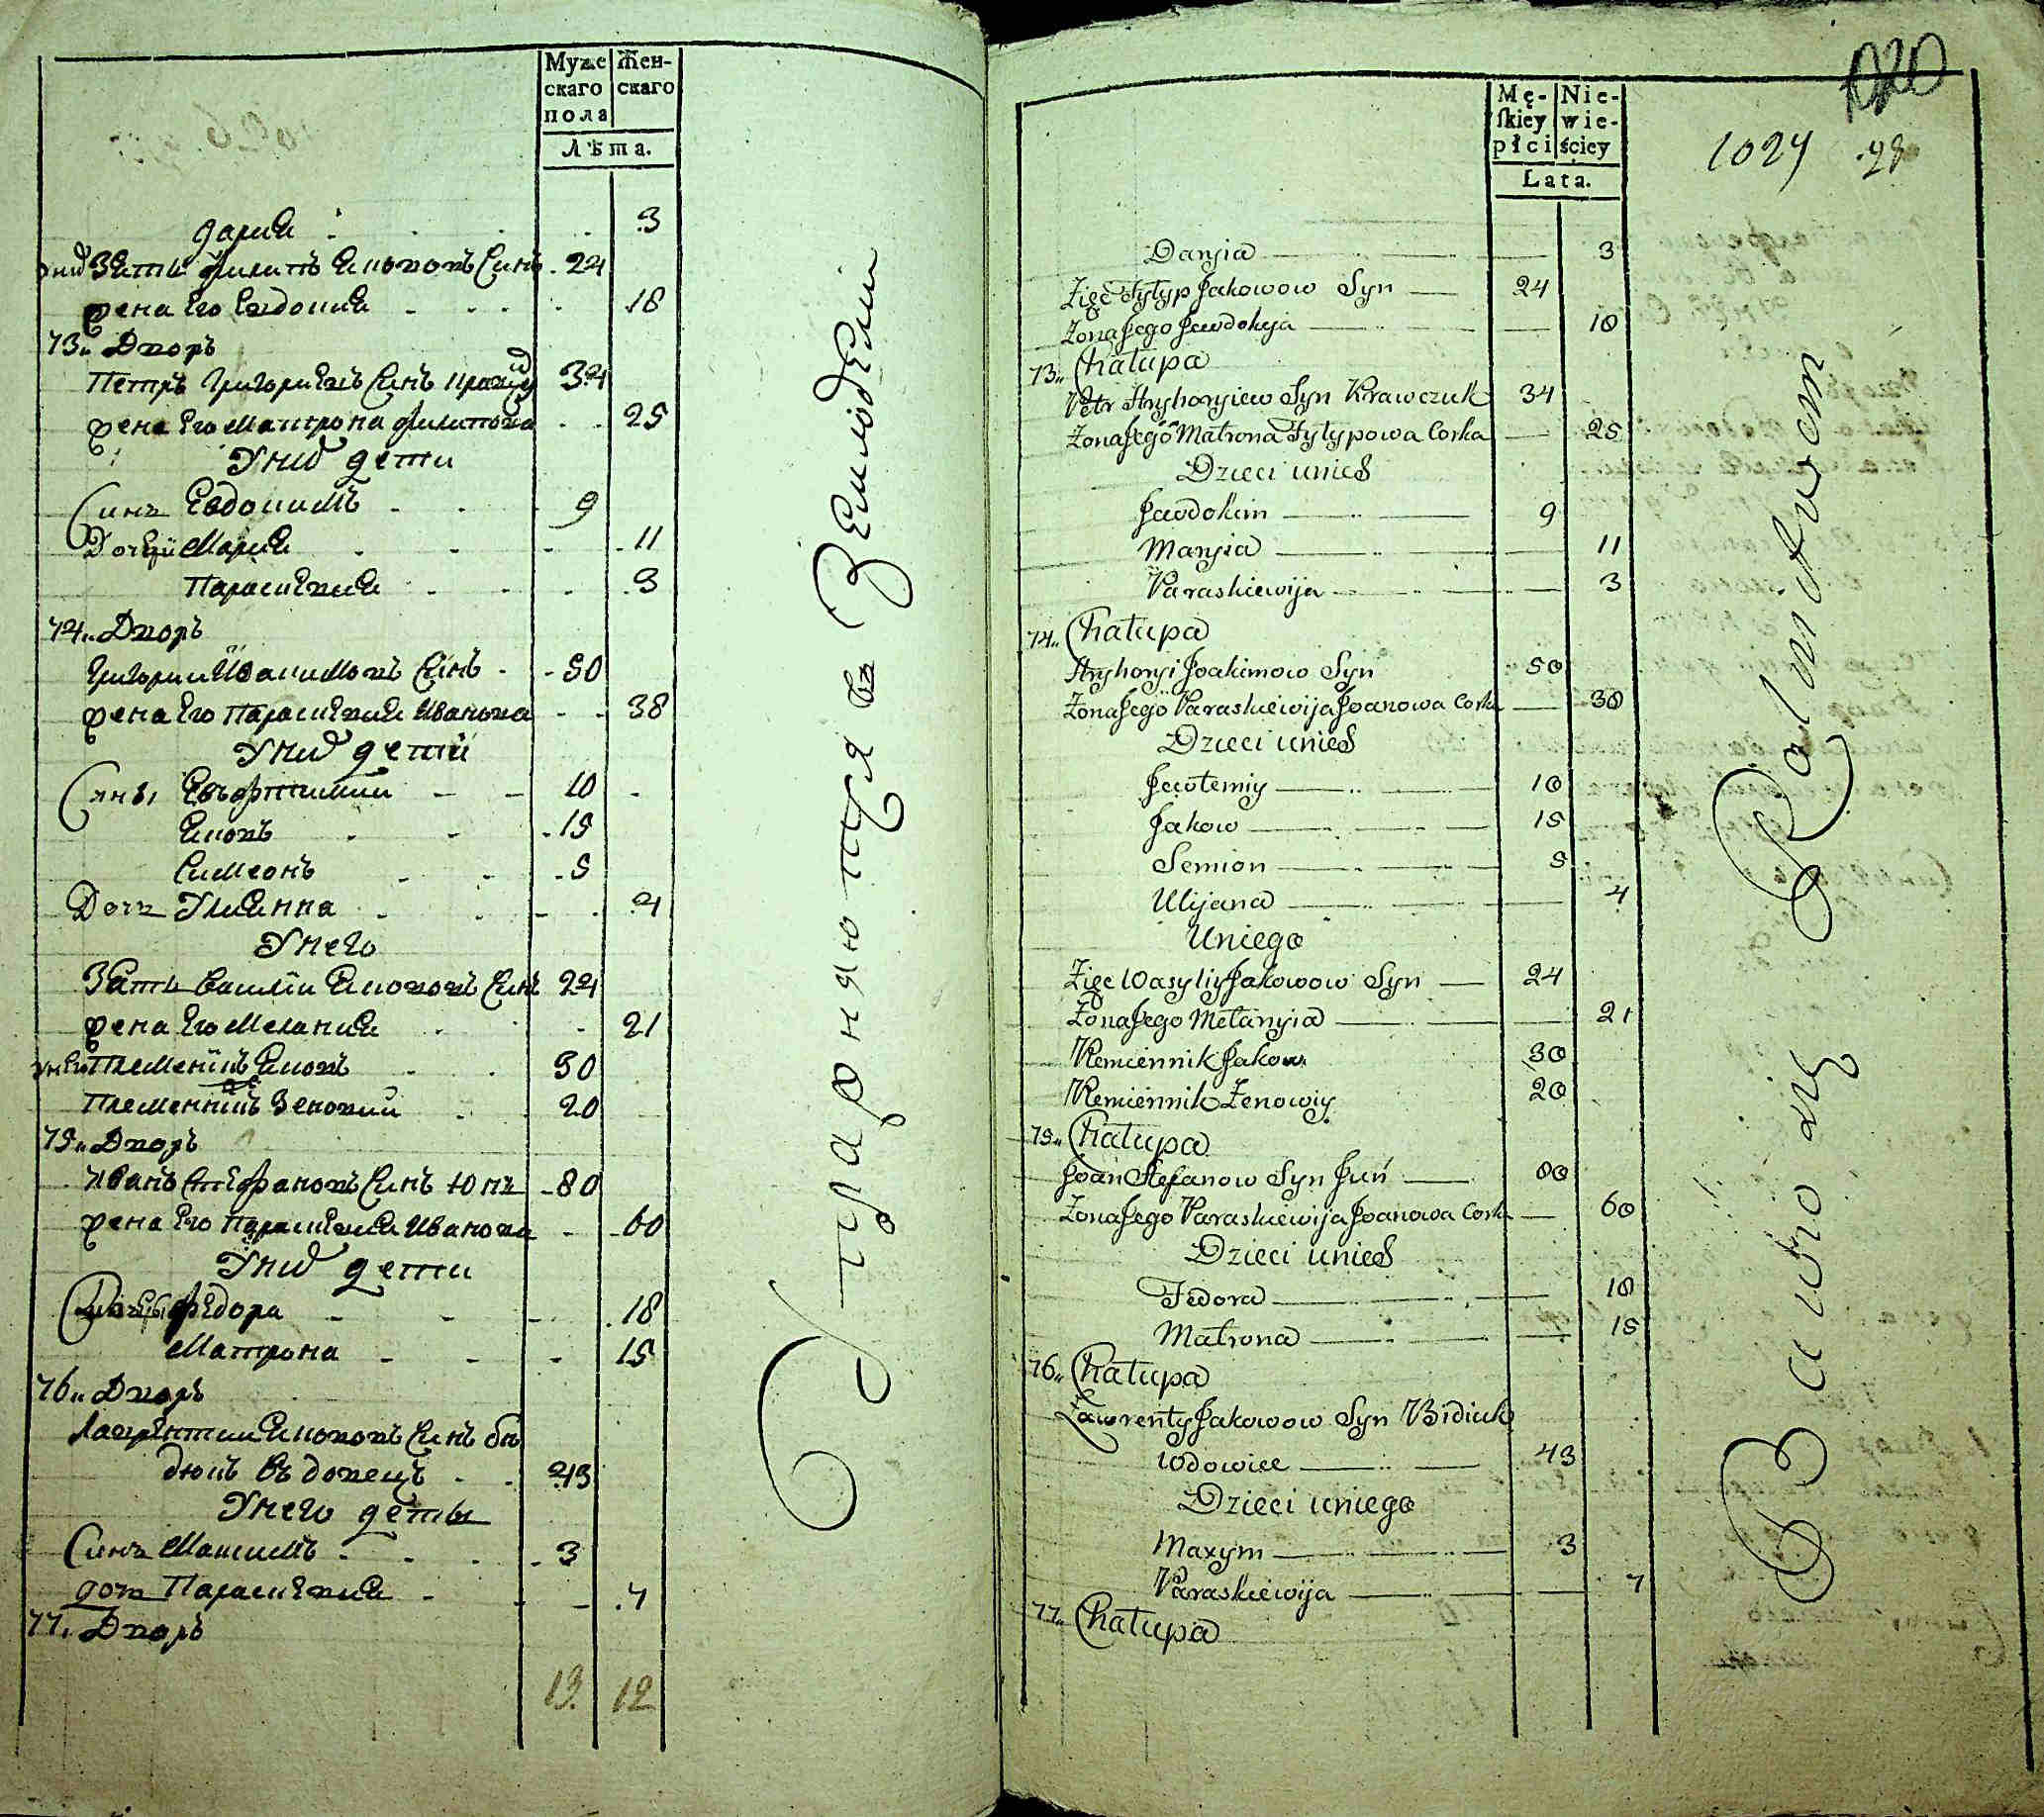 Муже
скаго
пола
Жен-
скаго
Лѣта.
Дария 3
Зять Филипъ Якововъ Синъ 24
жена Его Евдокия 18
73. Дворъ
Петръ Григориевъ Синъ 34
жена Его Матрона Филипова 25
У них дети
Синъ Евдокимъ 9
Дочери Мария 11
Параскевия 3
74. Дворъ
Григории Иоакимовъ Синъ 50
жена Его Параскевия Иванова 38
У них дети
Сины Евфтимии 10
Яковъ 15
Симеонъ 5
Дочь Улианна 4
У него
Зять Василии Якововъ Синъ 24
жена Его Мелания 21
Племенникъ Яковъ 30
Племенникъ Зеновии 20
75. Дворъ
Иванъ Стефановъ Синъ Юнь 80
жена Его Параскевия Иванова 60
У них дети
Федора 18
Матрона 15
76. Дворъ
Лаврентии Якововъ Синъ Би
дюкъ вдовецъ 43
У него дети
Синъ Максимъ 3
дочь Параскевия 7
77. Дворъ
13. 12
Упражняются въ Земледелии
Mę-
skiey
płci
Nie-
wie-
ściey
Lata.
1020
1024
98
Daryia 3
Zięć Fylyp Jakowow Syn 24
Zona Jego Jewdokyja 18
73. Chałupa
Petr Hryhoryiew Syn Krawczuk 34
Zona Jego Matrona Fylypowa Corka 25
Dzieci unich
Jewdokim 9
Maryia 11
Paraskiewija 3
74. Chałupa
Hryhoryi Joakimow Syn 50
Zona Jego Paraskiewija Joanowa Corka 38
Dzieci unich
Jewtemiy 10
Jakow 15
Semion 5
Ulijana 4
Uniego
Zięć Wasyliy Jakowow Syn 24
Zona Jego Mełanyia 21
Plemiennik Jakow 30
Plemiennik Zenowiy 20
75. Chałupa
Joan Stefanow Syn Juń 80
Zona Jego Paraskiewija Joanowa Corka 60
Dzieci unich
Fedora 18
Matrona 15
76. Chałupa
Ławrenty Jakowow Syn Bidiuk
Wdowiec 43
Dzieci uniego
Maxym 3
Paraskiewija 7
77. Chałupa
Bawią się Rolnictwem